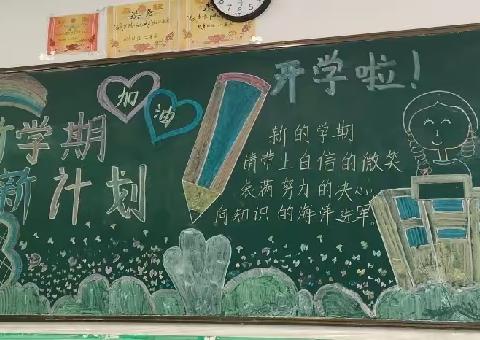 开学啦！
加油
新学期
新计划
新的学期
请带上自信的微笑
装满努力的决心
向知识的海洋进军